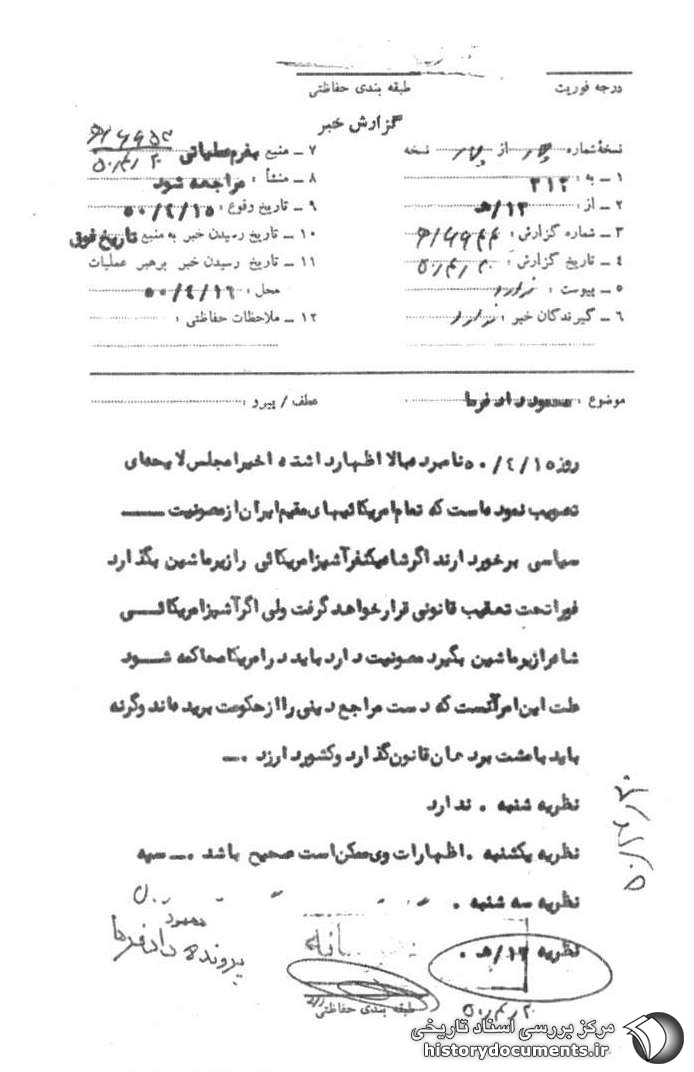 درجه فوریت
طبقه بندی حفاظتی
گزارش خبر
نسخهٔ شماره چهار از چهار نسخه
۱ ــ به : ۳۱۲
۲ ــ از : ۱۲/هـ
۳ ــ شماره گزارش :
۴ ــ تاریخ گزارش :
۵ ــ پیوست : ندارد
۶ ــ گیرندگان خبر : ندارد
۷ ــ منبع بفرم عملیاتی
۸ ــ منشأ : مراجعه شود
۹ ــ تاریخ وقوع : ۵۰/۴/۱۵
۱۰ ــ تاریخ رسیدن خبر به منبع تاریخ فوق
۱۱ ــ تاریخ رسیدن خبر برهبر عملیات
محل : ۵۰/۴/۱۶
۱۲ ــ ملاحظات حفاظتی :
موضوع : مسعود دادفرما
عطف / پیرو :
روز ۵۰/۴/۱۵ نامبرده بالا اظهار داشته اخیرا مجلس لایحه‌ای
تصویب نموده است که تمام امریکائیهای مقیم ایران از مصونیت ــــ
سیاسی برخوردارند اگر شما یکنفر آشپز امریکائی را زیر ماشین بگذارد
فورا تحت تعقیب قانونی قرار خواهد گرفت ولی اگر آشپز امریکائـــی
شما را زیر ماشین بگیرد مصونیت دارد باید در امریکا محاکمه شــود
علت این امر آنست که دست مراجع دینی را از حکومت بریده‌اند وگرنه
باید با مشت بر دهان قانون‌گذارد و کشور دارزد .ــ
نظریه شنبه . ندارد
نظریه یکشنبه . اظهارات وی ممکن است صحیح باشد .ــ سپه
نظریه سه شنبه .
نظریه ۱۲/هـ .
پرونده دادفرما
طبقه بندی حفاظتی
مرکز بررسی اسناد تاریخی
historydocuments.ir